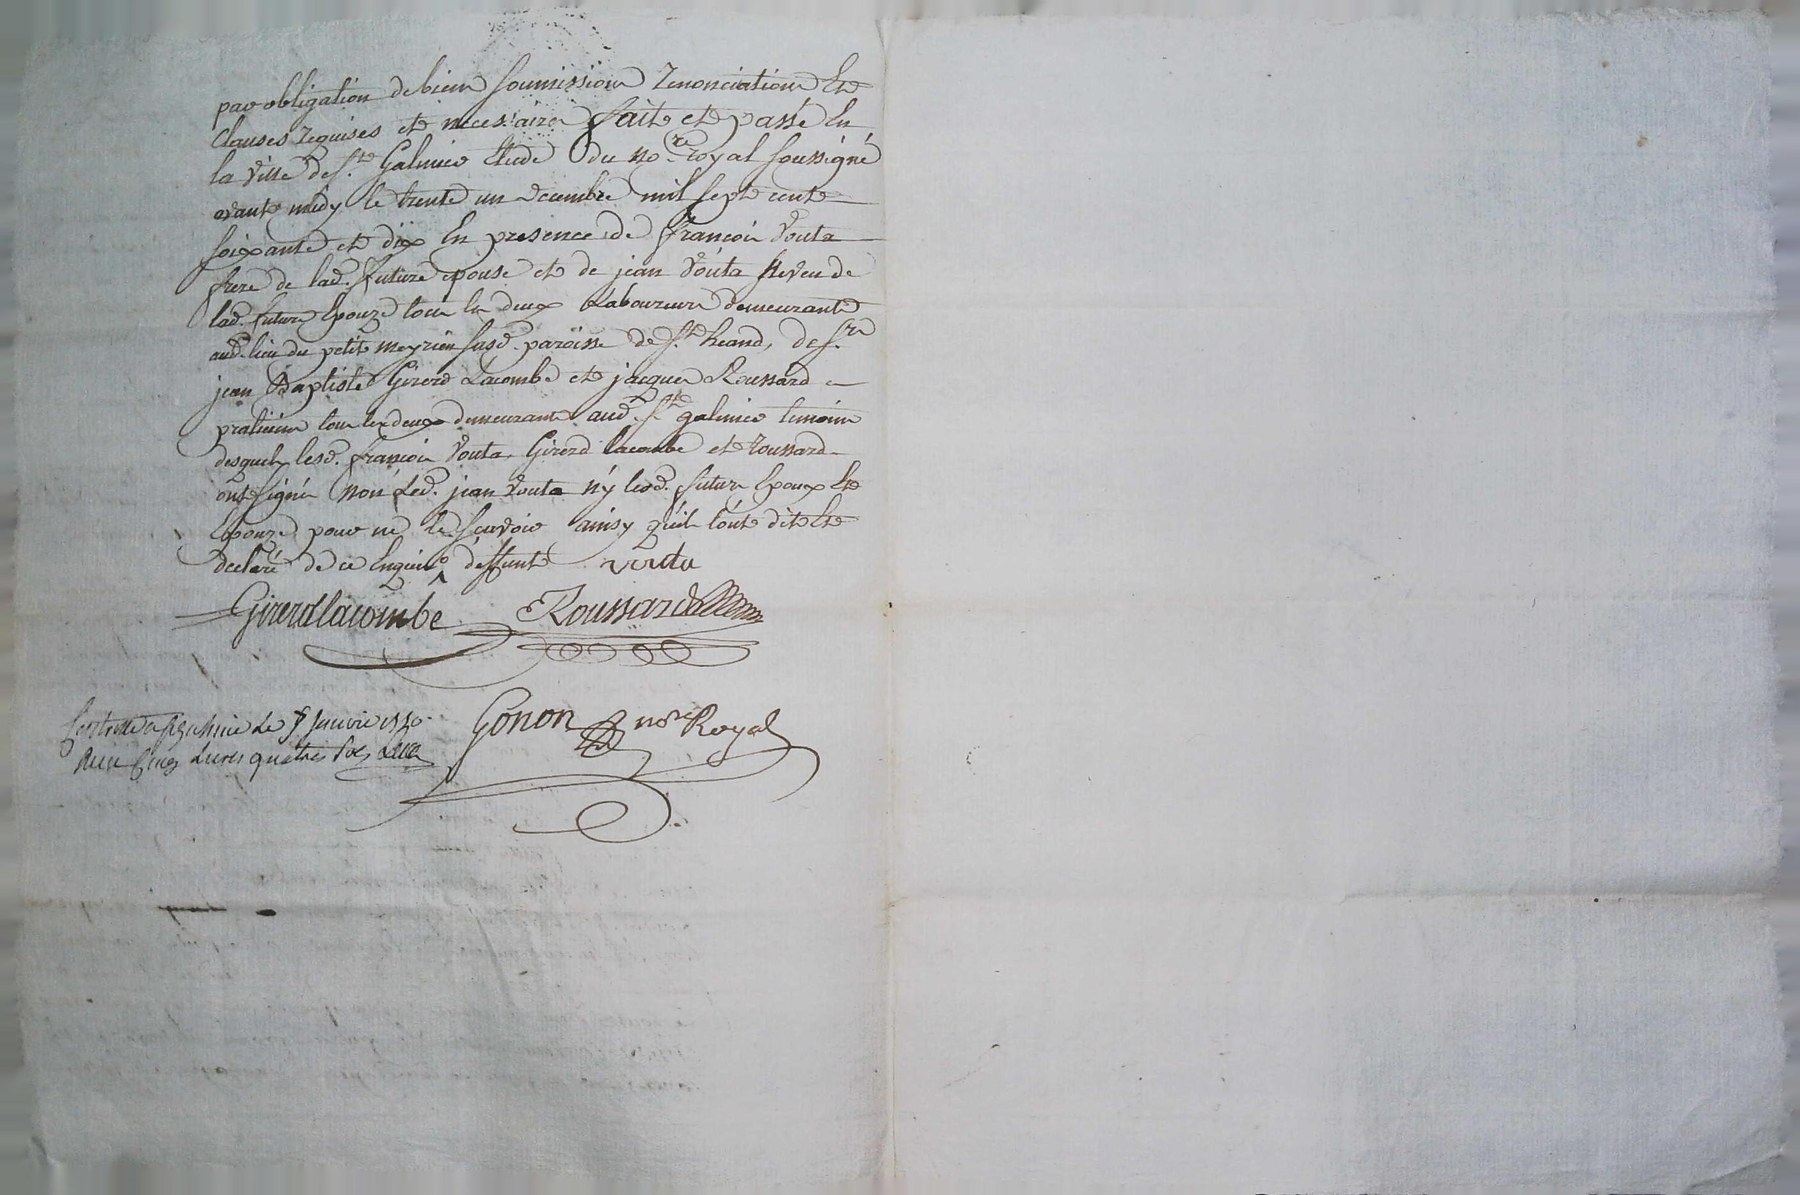 par obligation de bien soumission renonciation Et
clauses requises et necessaires fait et passé En
la ville de St. Galmier Etude du nore. royal soussigné
avant midy le trente un decembre mil sept cent
soixante et dix En presence de françois Vouta
frere de lad. future epouse et de jean Vouta Neveu de
lad. future Epouze tous les deux Laboureurs demeurants
aud. lieu du petit meyrieu susd. paroisse de St. heand, de sr.
jean Baptiste Girerd Lacombe et jacques Roussard
praticiens tous les deux demeurants aud. St. galmier temoins
desquels lesd. françois Vouta, Girerd lacombe et roussard
ont signés Non Led. jean vouta n'y lesd. futurs Epoux Et
Epouze pour ne le scavoir ainsy qu'ils l'ont dit Et
declaré de ce Enquis deffunt vouta
Girerdlacombe Roussard
Gonon nore Royal
a St galmier Le janvier
cinq Livres quatre sols